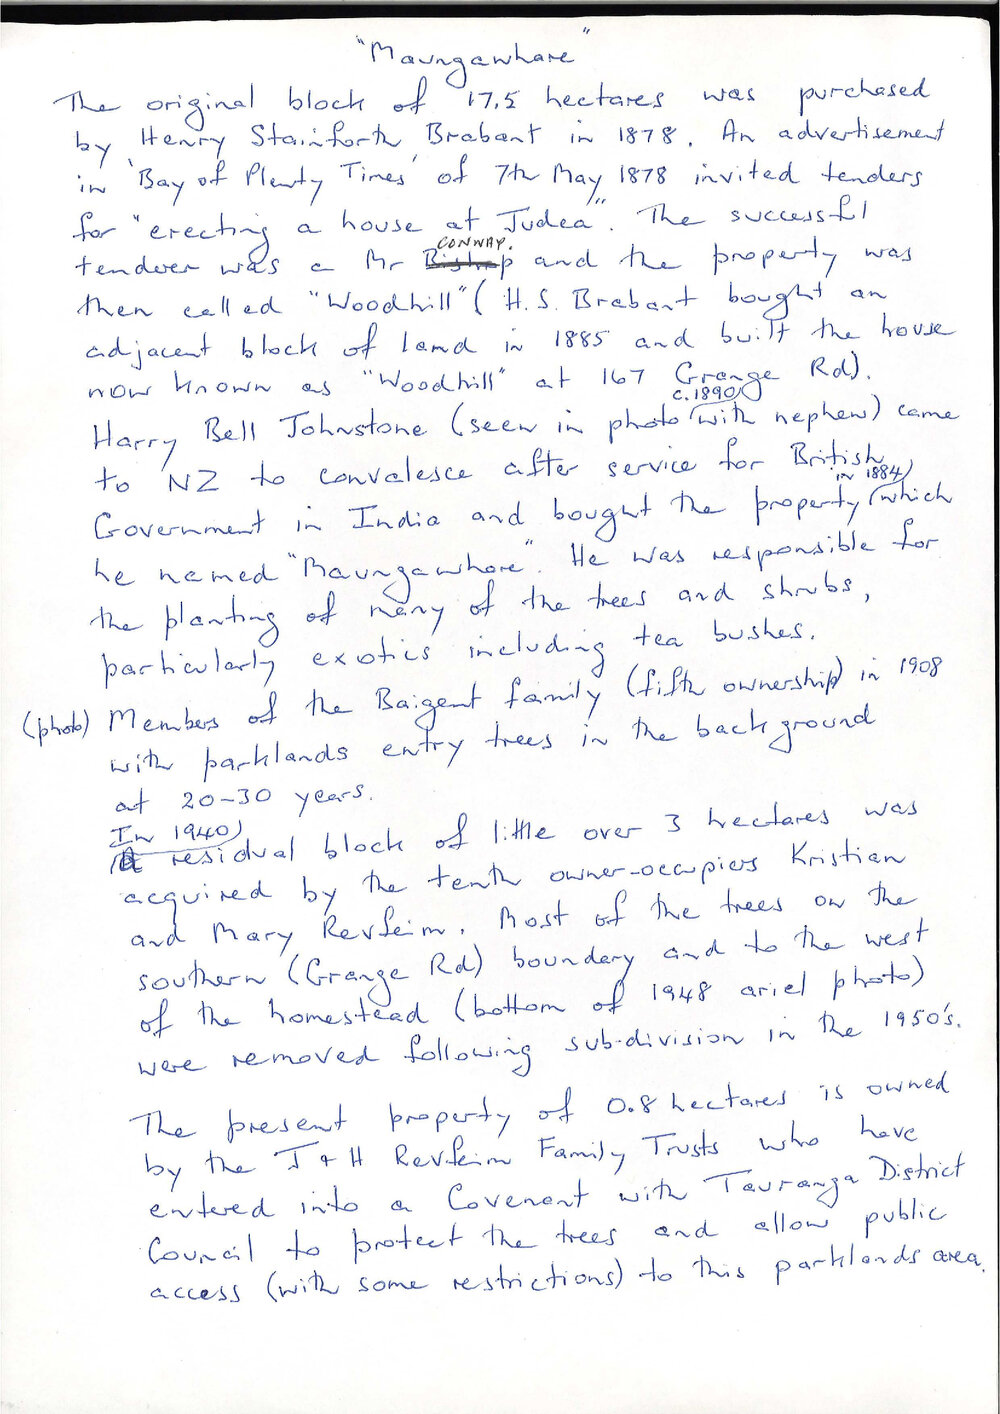 "Maungawhare"
The original block of 17.5 hectares was purchased
by Henry Stainforth Brabant in 1878. An advertisement
in 'Bay of Plenty Times' of 7th May 1878 invited tenders
for "erecting a house at Judea". The successful
CONWAY.
tenderer was a Mr Bishop and the property was
then called "Woodhill" (H.S. Brabant bought an
adjacent block of land in 1885 and built the house
now known as "Woodhill" at 167 Grange Rd).
c.1890
Harry Bell Johnstone (seen in photo with nephew) came
to NZ to convalesce after service for British
in 1884
Government in India and bought the property which
he named "Maungawhare". He was responsible for
the planting of many of the trees and shrubs,
particularly exotics including tea bushes.
(photo) Members of the Baigent family (fifth ownership) in 1908
with parklands entry trees in the background
at 20-30 years.
In 1940
A residual block of little over 3 hectares was
acquired by the tenth owner-occupiers Kristian
and Mary Revfeim. Most of the trees on the
southern (Grange Rd) boundary and to the west
of the homestead (bottom of 1948 ariel photo)
were removed following sub-division in the 1950's.
The present property of 0.8 hectares is owned
by the J & H Revfeim Family Trusts who have
entered into a Covenant with Tauranga District
Council to protect the trees and allow public
access (with some restrictions) to this parklands area.